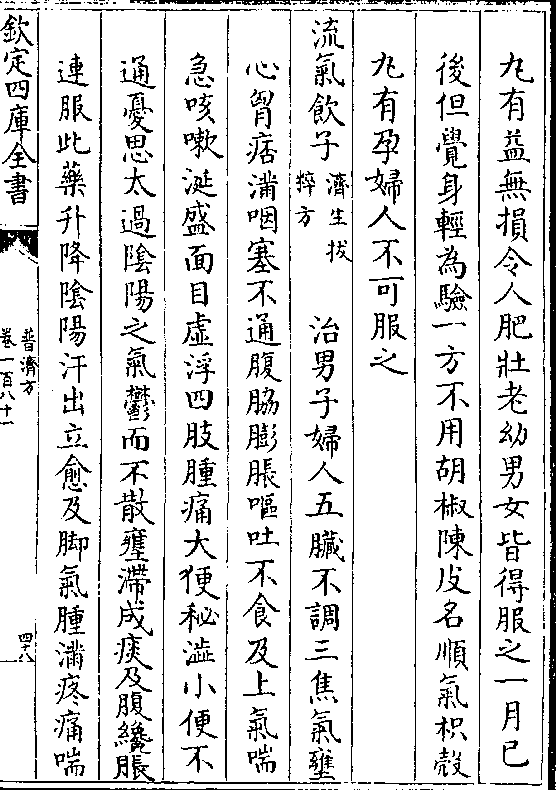 丸有益無損令人肥壯老幼男女皆得服之一月已
後但覺身輕為驗一方不用胡椒陳皮名順氣枳殼
丸有孕婦人不可服之
流氣飲子濟生拔粹方 治男子婦人五臟不調三焦氣壅
心胷痞滿咽塞不通腹脇膨脹嘔吐不食及上氣喘
急咳嗽涎盛面目虚浮四肢腫痛大便秘澁小便不
通憂思太過陰陽之氣鬱而不散壅滯成痰及腹纔脹
連服此藥升降陰陽汗出立愈及脚氣腫滿疼痛喘
欽定四庫全書
普濟方
卷一百八十一
四十八